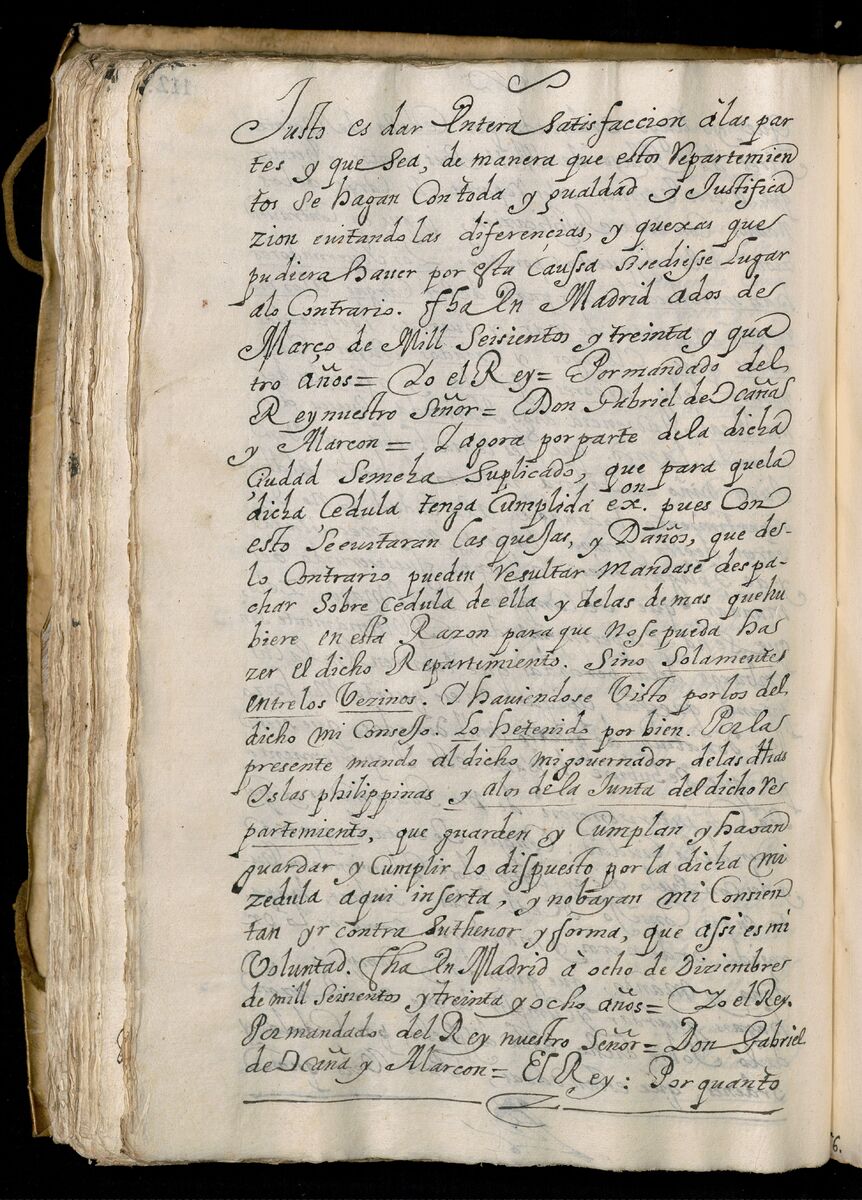 Justo es dar Entera Satisfaccion â las par
tes y que Sea, de manera que estos Repartemien
tos Se hagan Con toda y gualdad y Justifica
zion evitando las diferencias, y quexas que
pudiera haver por esta Caussa si se diesse Lugar
alo Contrario. fha En Madrid ados de
Março de Mill Seisientos y treinta y qua
tro años = Yo el Rey = Por mandado del
Rey nuestro Señor = Don Gabriel de Ocaña
y Alarcon = Y agora por parte de la dicha
Ciudad Semeha Suplicado, que para que la
dicha Cedula tenga Cumplida exon. pues Con
esto Se evitaran las quejas, y Daños, que de-
lo Contrario pueden Resultar Mandase despa-
char Sobre Cedula de ella y de las de mas que hu
biere en esta Razon para que No se pueda ha
zer el dicho Repartimiento. Sino Solamente
entre los Vezinos. Y haviendose Visto por los del
dicho mi Consejo. Lo he tenido por bien. Por la
presente mando al dicho mi governador de las dhas
Yslas philippinas y alos de la Junta del dicho Re
partemiento, que guarden y Cumplan y hagan
guardar y Cumplir lo dispuesto por la dicha mi
zedula aqui inserta, y no bayan ni Consien
tan yr contra Su thenor y forma, que assi es mi
Voluntad. fha En Madrid â ocho de Diziembre
de mill Seisientos y treinta y ocho años = Yo el Rey.
Por mandado del Rey nuestro Señor = Don Gabriel
de Ocaña y Alarcon = El Rey: Por quanto
112
6.